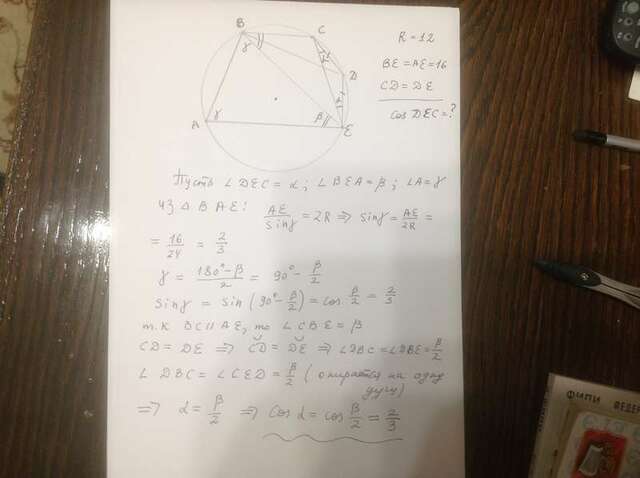 B
C
R = 12
γ
α
D
BE = AE = 16
CD = DE
A
γ
β
α
E
cos DEC = ?
Пусть ∠DEC = α; ∠BEA = β; ∠A = γ
Из △BAE: AE/sinγ = 2R ⇒ sinγ = AE/2R =
= 16/24 = 2/3
γ = (180° − β)/2 = 90° − β/2
sinγ = sin (90° − β/2) = cos β/2 = 2/3
т.к BC || AE, то ∠CBE = β
CD = DE ⇒ ◡CD = ◡DE ⇒ ∠DBC = ∠DBE = β/2
∠DBC = ∠CED = β/2 (опирается на одну
дугу)
⇒ α = β/2 ⇒ cos α = cos β/2 = 2/3
ФИПИ